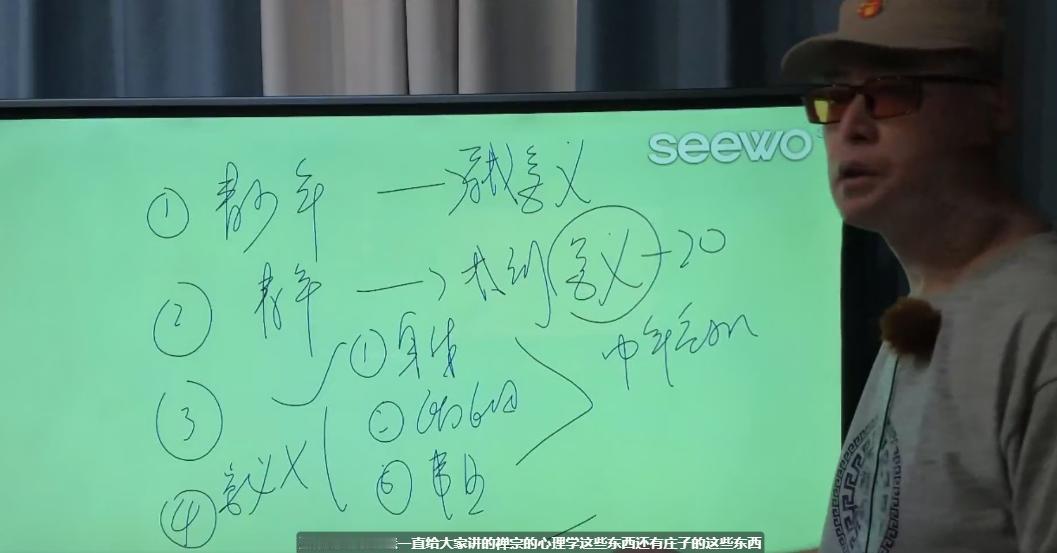 seewo
① 青少年 — 寻找意义
② 青年 → 找到意义 — 20
① 身体
中年危机
③
②
④ 意义
③ 事业
一直给大家讲的禅宗的心理学这些东西还有庄子的这些东西